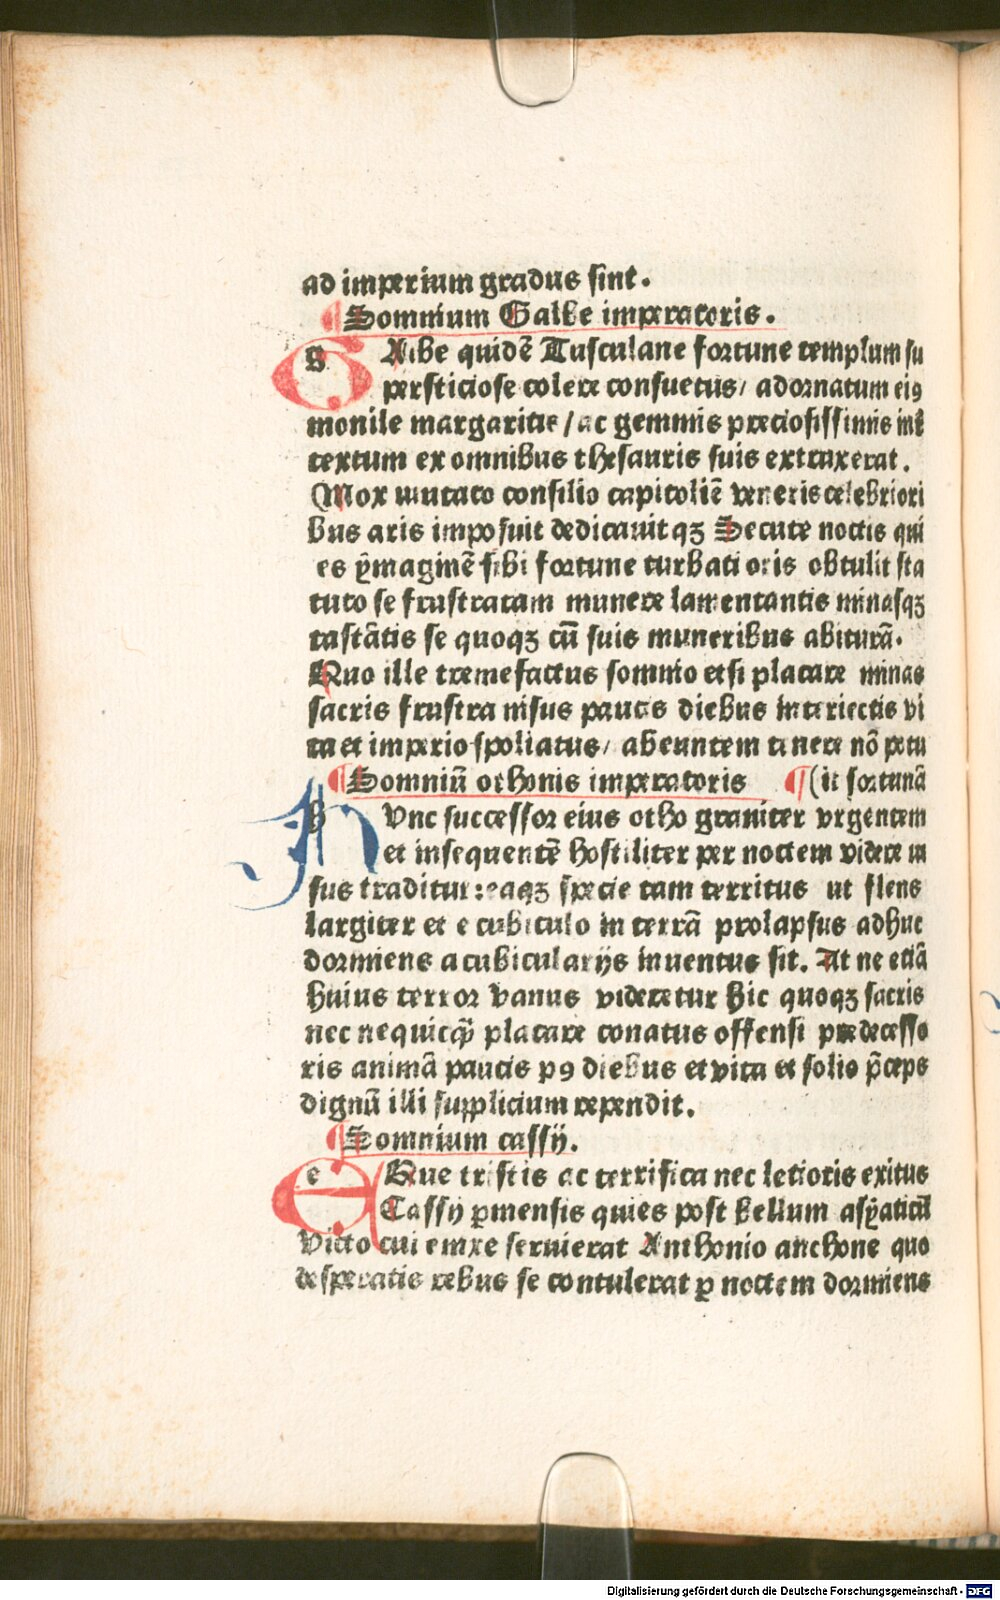 ad imperium gradus sint.
¶Somnium Galbe imperatoris.
GAlbe quidē Tusculane fortune templum su
persticiose colere consuetus/ adornatum eiꝯ
monile margaritis /ac gemmis preciosissimis int
textum ex omnibus thesauris suis extraxerat.
Mox mutato consilio capitoliē veneris celebriori
bus aris imposuit dedicauitqꝫ Secute noctis qui
es ẏmaginē sibi fortune turbatioris obtulit sta
tuto se frustratam munere lamentantis minasqꝫ
iactātis se quoqꝫ cū suis muneribus abiturā.
Quo ille tremefactus somnio etsi placare minas
sacris frustra nisus paucis diebus interiectis vi
ta et imperio spoliatus/ abeuntem tenere nō potu
¶Somniū othonis imperatoris ¶(it fortunā
HVnc successor eius otho grauiter vrgentem
et insequentē hostiliter per noctem videre ui
sus traditur: eaqꝫ specie tam territus ut flens
largiter et e cubiculo in terrā prolapsus adhuc
dormiens a cubicularijs inuentus sit. At ne etiā
huius terror vanus videretur hic quoqꝫ sacris
nec nequicꝙ̄ placare conatus offensi predecesso
ris animā paucis pꝯ diebus et vita et solio p̄ceps
dignū illi supplicium rependit.
¶Somnium cassij.
EQue tristis ac terrifica nec letioris exitus
Cassij ꝑmensis quies post bellum asẏaticū
Victo cui enixe seruierat Anthonio anthone quo
desperatis rebus se contulerat ꝑ noctem dormiens
Digitalisierung gefördert durch die Deutsche Forschungsgemeinschaft - DFG